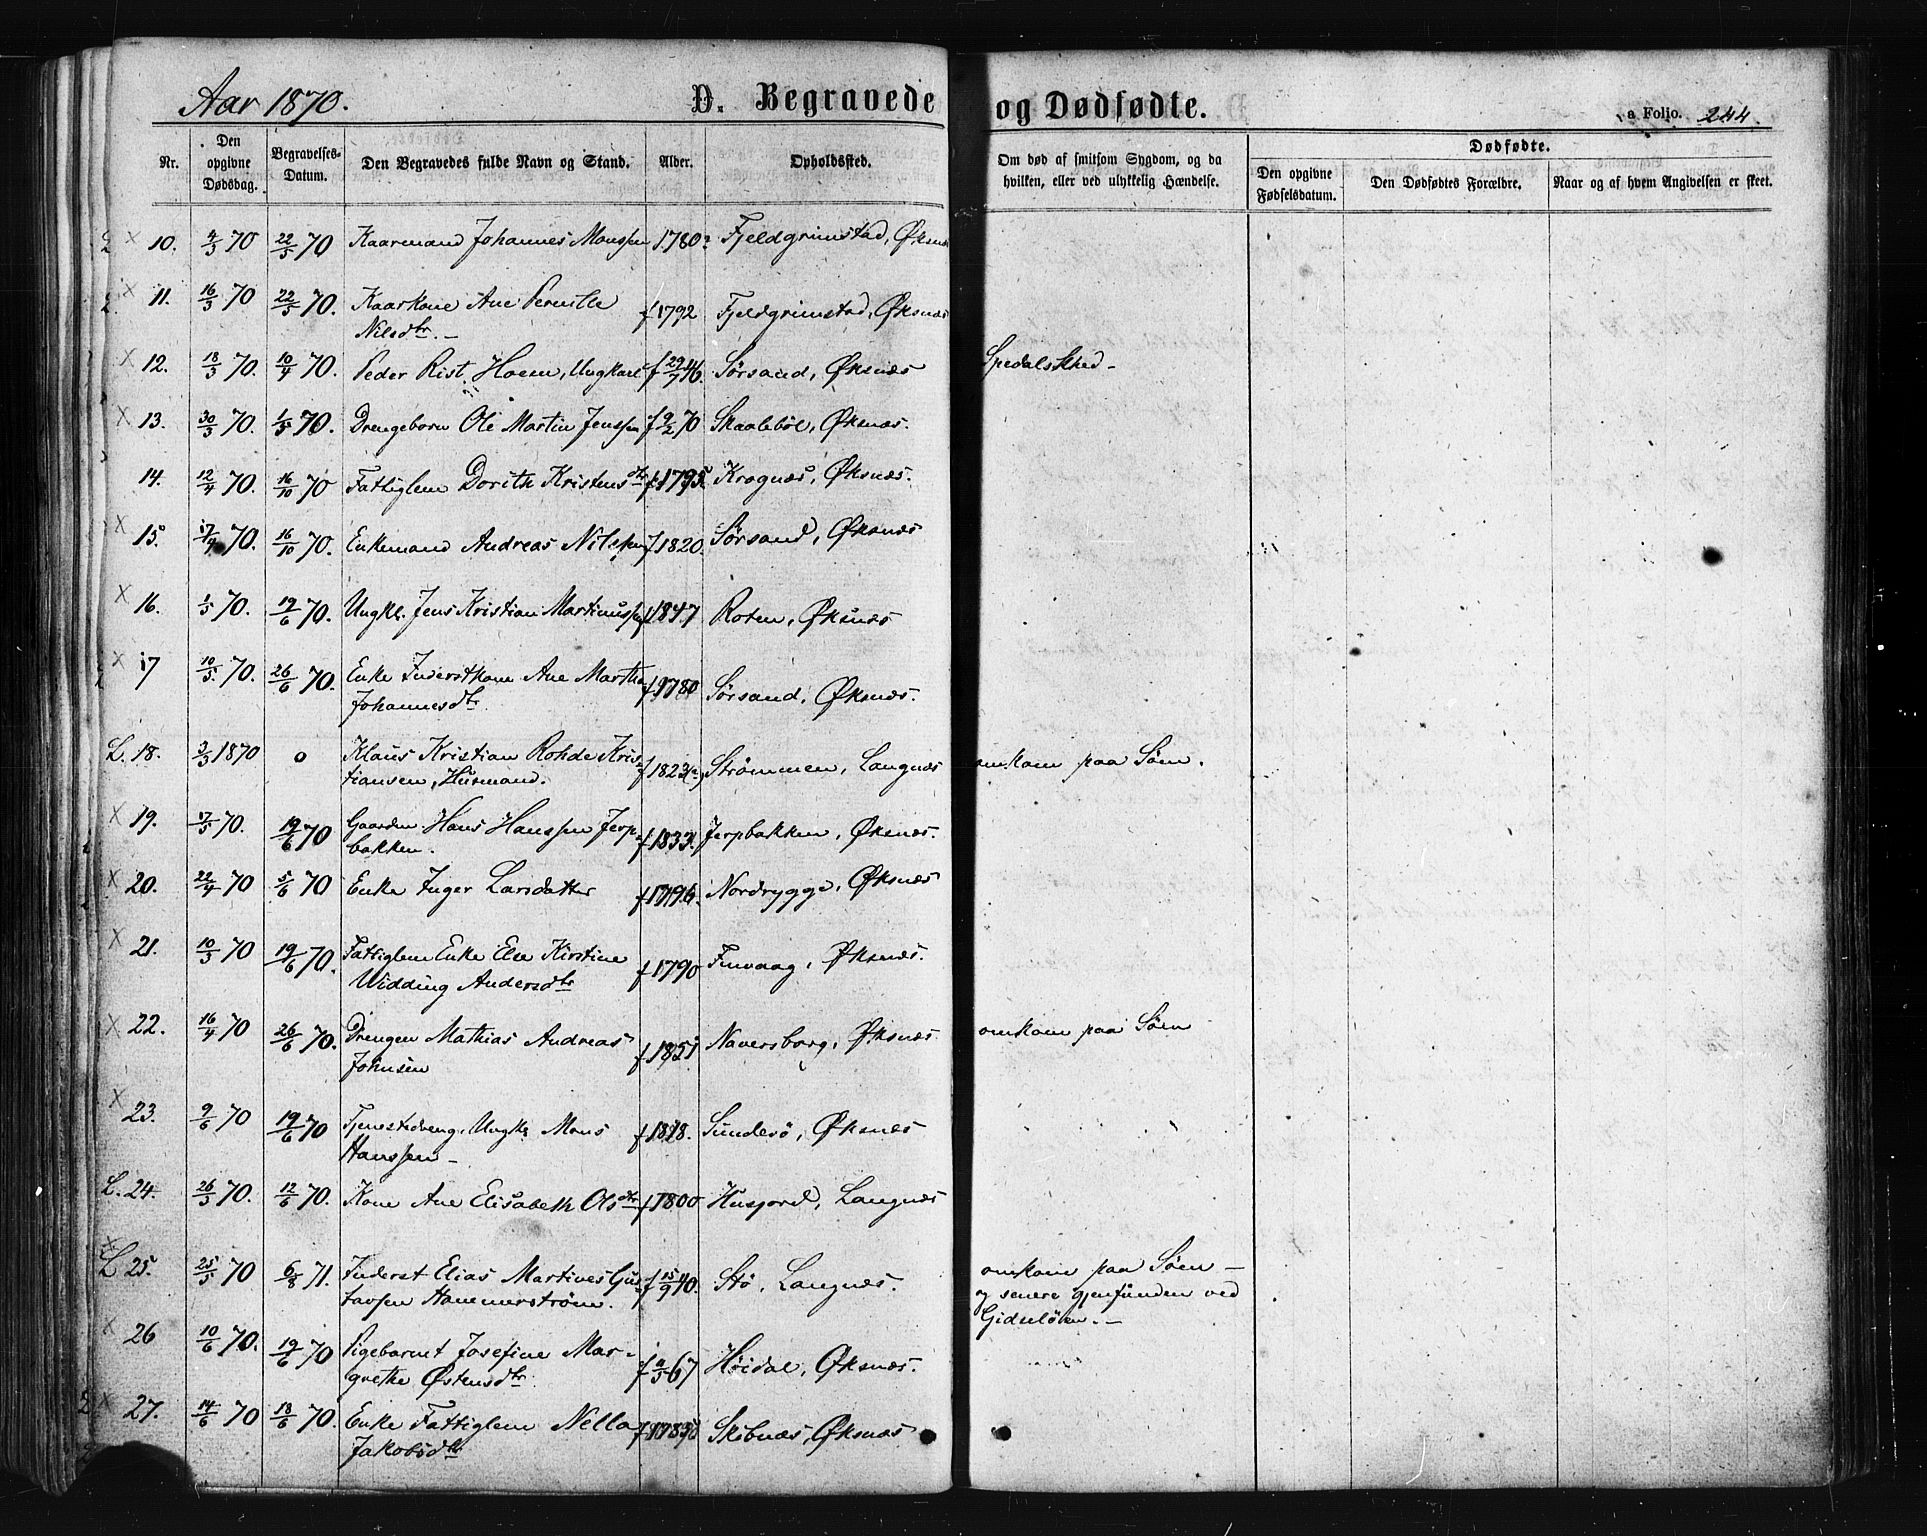 Aar 1870.
D. Begravede og Dødfødte.
a Folio. 244.
Nr.
Den opgivne Dødsdag.
Begravelses-Datum.
Den Begravedes fulde Navn og Stand.
Alder.
Opholdssted.
Om død af smitsom Sygdom, og da hvilken, eller ved ulykkelig Hændelse.
Dødfødte.
Den opgivne Fødselsdatum.
Den Dødfødtes Forældre.
Naar og af hvem Angivelsen er skeet.
10. 4/3 70 22/5 70 Kaarmand Johannes Monssen 1780? Fjeldgrimstad, Øksnæs
11. 16/3 70 22/5 70. Kaarkone Ane Pernille f 1792 Fjeldgrimstad, Øksnæs
Nilsdtr. –
12. 18/3 70. 10/4 70. Peder Rist Hoem, Ungkarl f 29/7 46. Sørsand, Øksnæs Spedalskhed –
13. 30/3 70. 1/5 70. Drengebarn Ole Martin Jenssen f 9/2 70 Skaalebøl, Øksnæs.
14. 12/4 70. 16/10 70 Fattiglem Dorith Kristensdtr f 1795. Kragnæs, Øksnæs.
15. 17/4 70. 16/10 70. Enkemand Andreas Nilssen f 1820. Sørsand, Øksnæs
16. 1/5 70. 19/6 70. Ungkl. Jens Kristian Martinussen f 1847 Roten, Øksnæs
17 10/5 70. 26/6 70. Enke Inderstkone Ane Martha f 1780 Sørsand, Øksnæs.
Johannesdtr.
L. 18. 3/3 1870 o Klaus Kristian Rohde Kris- f 1823 Strømmen, Langnæs omkom paa Søen.
tiansen, Husmand.
19. 17/5 70. 19/6 70 Gaardm. Hans Hanssen Jerp- f 1833. Jerpbakken, Øksnæs.
bakken.
20. 22/4 70 5/6 70 Enke Inger Larsdatter f 1796. Nordrygge, Øksnæs
21. 10/3 70 19/6 70. Fattiglem Enke Else Kirstine f 1790 Finvaag, Øksnæs.
Widding Andersdtr
22. 16/4 70 26/6 70. Drengen Mathias Andreas f 1851 Naversborg, Øksnæs omkom paa Søen
Johnsen
23. 9/6 70 19/6 70 Tjenestedreng, Ungkl. Mons f 1818. Sundesø, Øksnæs
Hanssen –
L. 24. 26/3 70. 12/6 70. Kone Ane Elisabeth Olsdtr f 1800 Husjord, Langnæs
L 25. 25/5 70 6/8 71. Inderst Elias Martines Gus- f 15/9 40. Stø, Langnæs. omkom paa Søen –
tavsen Hammerstrøm. og senere gjenfunden ved
Gidsløen. –
26 10/6 70. 19/6 70 Pigebarnet Josefine Mar- 67 Høidal, Øksnæs.
grethe Østensdtr.
27. 14/6 70 18/6 70. Enke Fattiglem Nella Skibnæs, Øksnæs
Jakobsdtr